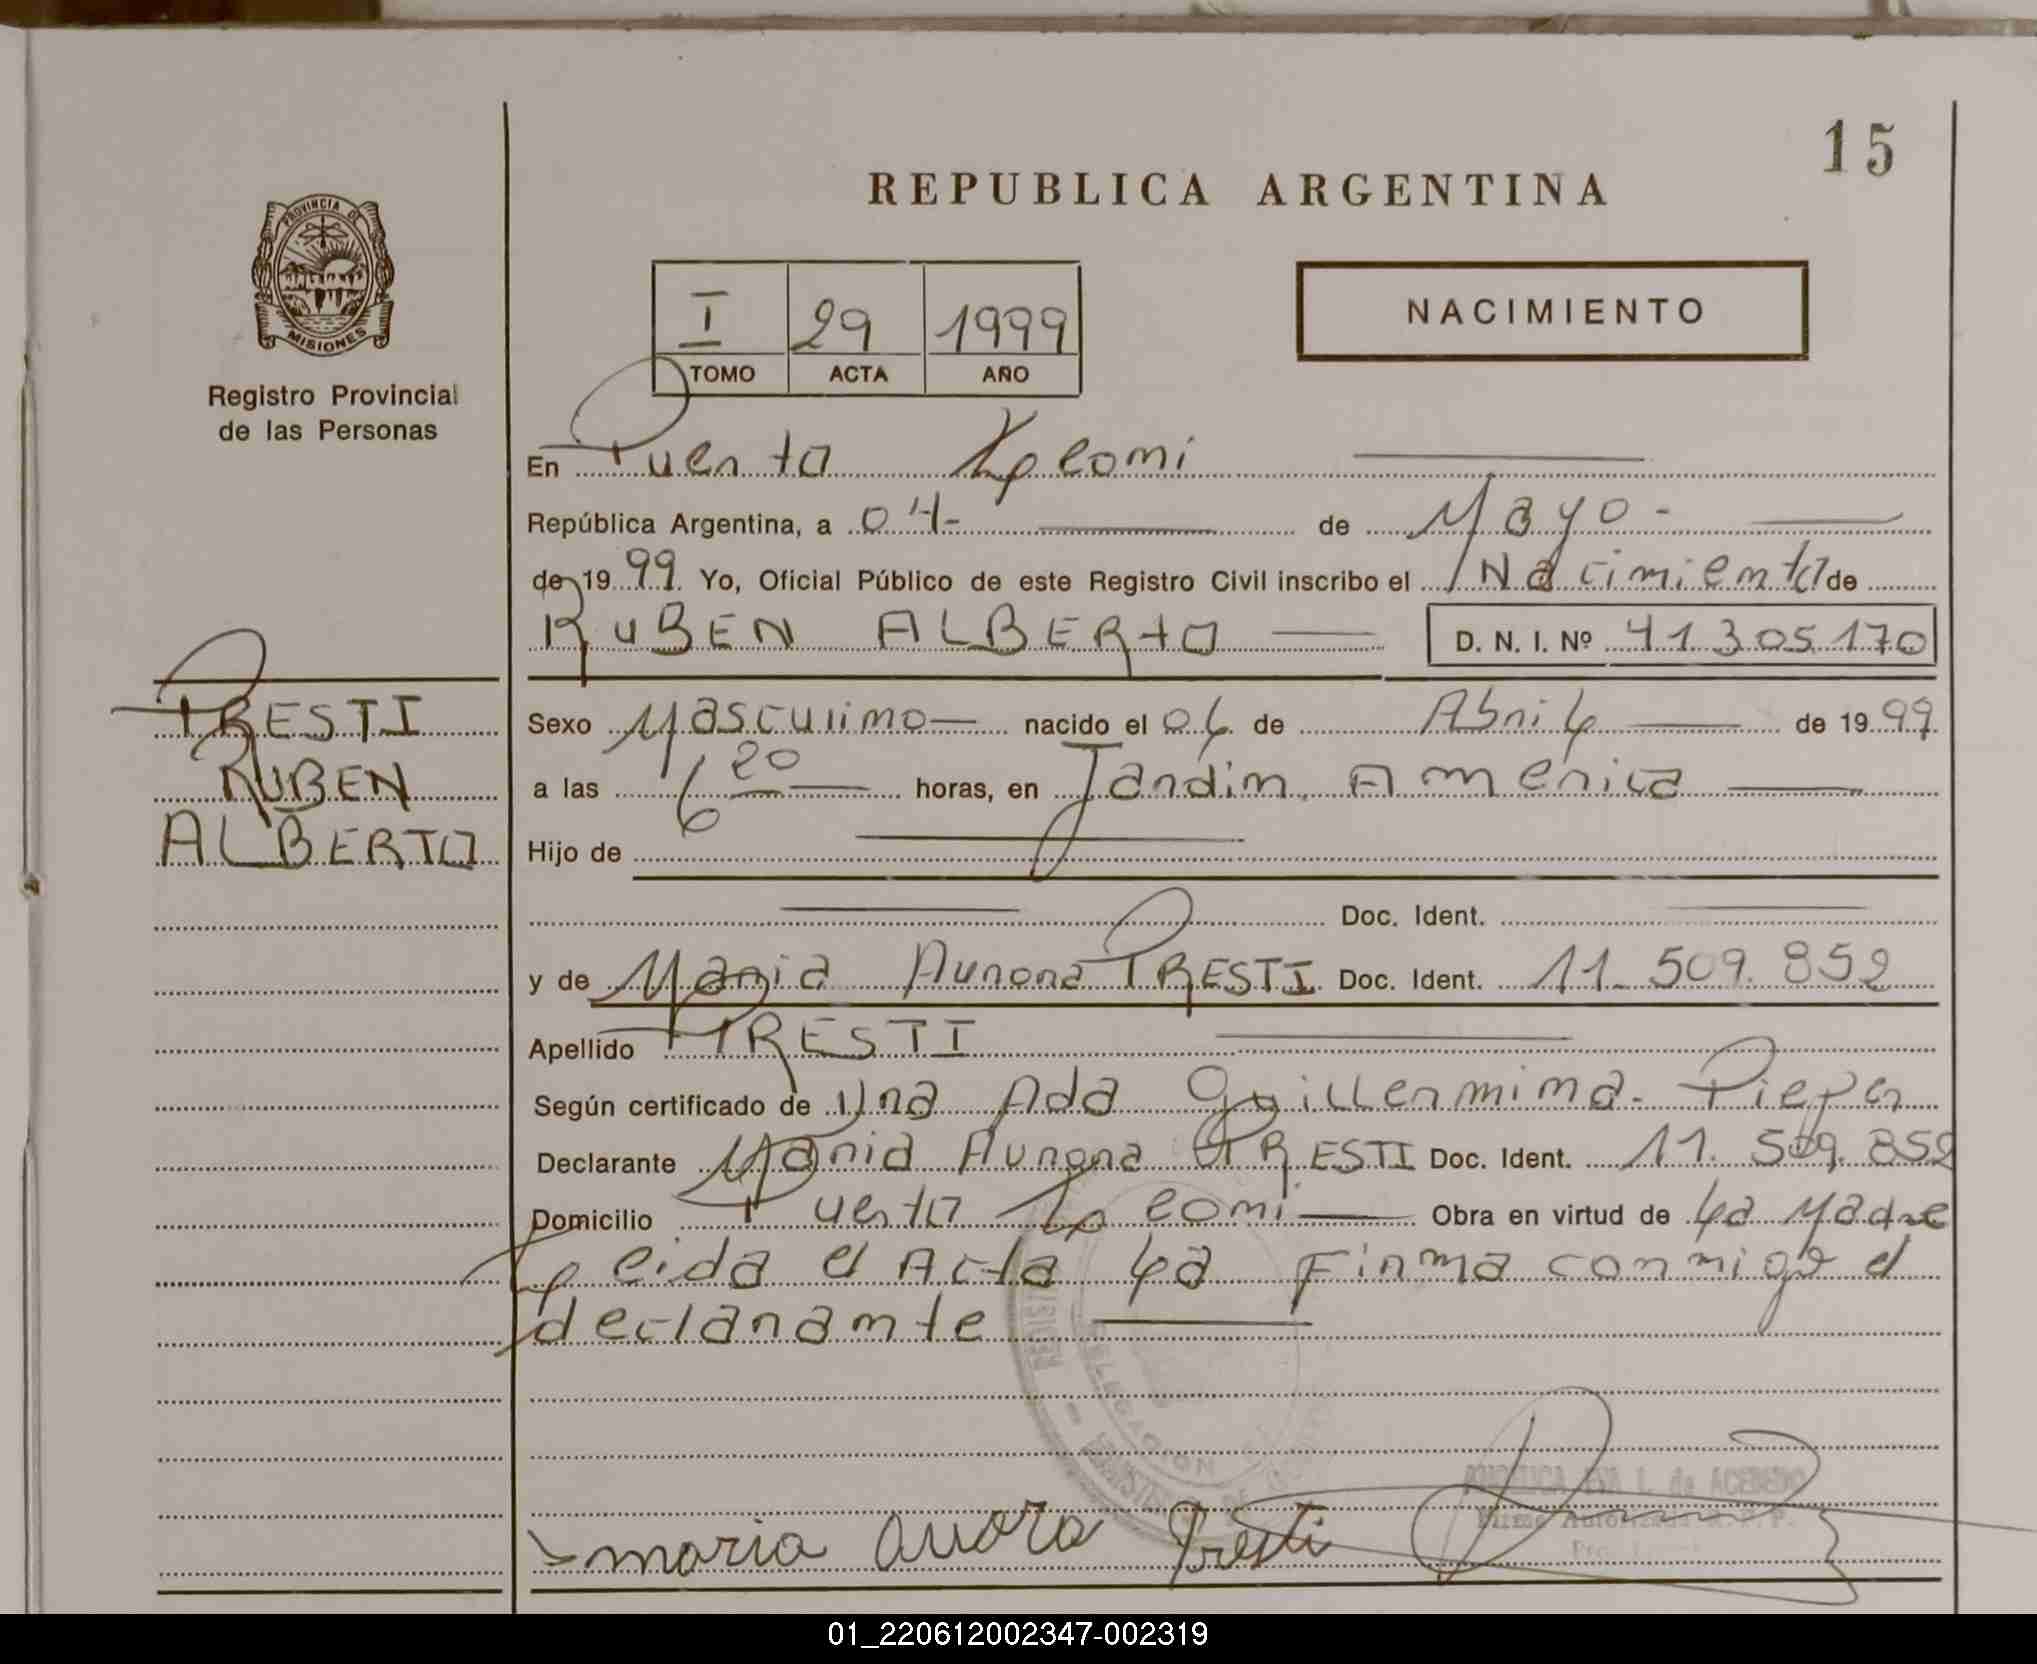 15
REPUBLICA ARGENTINA
PROVINCIA DE
MISIONES
Registro Provincial
de las Personas
I 29 1999
TOMO ACTA AÑO
NACIMIENTO
En Puerto Leoni
República Argentina, a 04- de Mayo-
de 1999 Yo, Oficial Público de este Registro Civil inscribo el Nacimiento de
RUBEN ALBERTO D. N. I. Nº 41.305.170
PRESTI
RUBEN
ALBERTO
Sexo Masculino nacido el 06 de Abril de 1999
a las 6 20 horas, en Jardin America
Hijo de
Doc. Ident.
y de Maria Aurora PRESTI Doc. Ident. 11.509.852
Apellido PRESTI
Según certificado de Una Ada Guillermina Pieper
Declarante Maria Aurora PRESTI Doc. Ident. 11.509.852
Domicilio Puerto Leoni Obra en virtud de La Madre
Leida el Acta La Firma conmigo el
declarante
DELEGACION
ANGELICA EVA L. de ACEBEDO
Firma Autorizada R. P. P.
maria aurora Presti
01_220612002347-002319